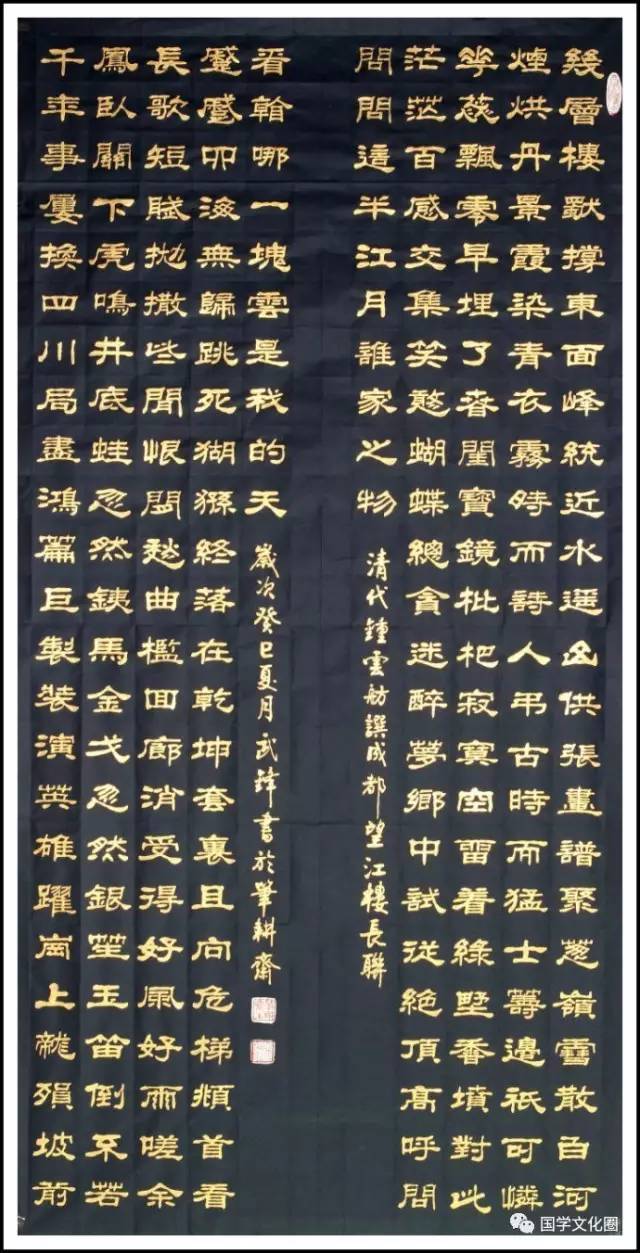 幾層樓獨撐東面峰統近水遥山供張畫譜聚葱嶺雪散白河
煙烘丹景霞染青衣霧時而詩人弔古時而猛士籌邊衹可憐
花蕊飄零早埋了春閨寶鏡枇杷寂寞空留着綠墅香墳對此
茫茫百感交集笑憨蝴蝶總貪迷醉夢鄉中試從絕頂高呼問
問問這半江月誰家之物
清代鍾雲舫譔成都望江樓長聯
千年事屢換四川局盡鴻篇巨製裝演英雄躍崗上龍殞坡前
鳳臥關下虎鳴井底蛙忽然鐵馬金戈忽然銀笙玉笛倒不若
長歌短賦拋撒些閒恨閒愁曲檻回廊消受得好風好雨嗟余
蹙蹙四海無歸跳死猢猻終落在乾坤套裏且向危梯頫首看
看看哪一塊雲是我的天
歲次癸巳夏月武鋒書於筆耕齋
国学文化圈